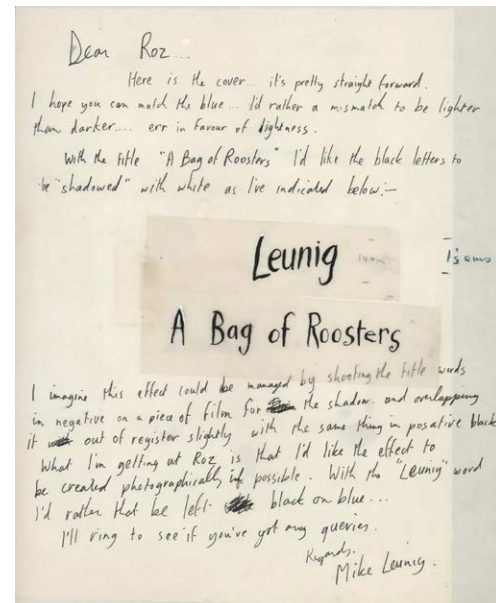 Dear Roz...
Here is the cover... it's pretty straight forward.
I hope you can match the blue... I'd rather a mismatch to be lighter
than darker.... err in favour of lightness.
With the title "A Bag of Roosters" I'd like the black letters to
be "shadowed" with white as I've indicated below:-
Leunig
A Bag of Roosters
I imagine this effect could be managed by shooting the title words
in negative on a piece of film for the shadow and overlapping
it out of register slightly with the same thing in posative black
What I'm getting at Roz is that I'd like the effect to
be created photographically if possible. With the "Leunig" word
I'd rather that be left black on blue...
I'll ring to see if you've got any queries.
Regards.
Mike Leunig.